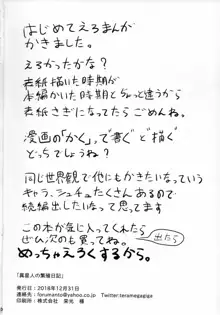 はじめてえろまんが
かきました。
えろかったかな?
表紙描いた時期が
本編かいた時期とちょっと違うから
表紙さぎになってたらごめんね。
漫画の「かく」って"書ぐ"と"描ぐ"
どっちでしょうね?
同じ世界観で他にもかきたいなっていう
キャラ、シュチュたくさんあるので
続編出したいなって思ってます。
この本が気に入ってくれたら
ぜひ次のも買ってね。(出たら)
めっちゃえろくするから。
『異星人の繁殖日記』
発行日:2018年12月31日
連絡先:forumanto@yahoo.co.jp
印刷所:株式会社 栄光 様
Twitter:teramegagiga